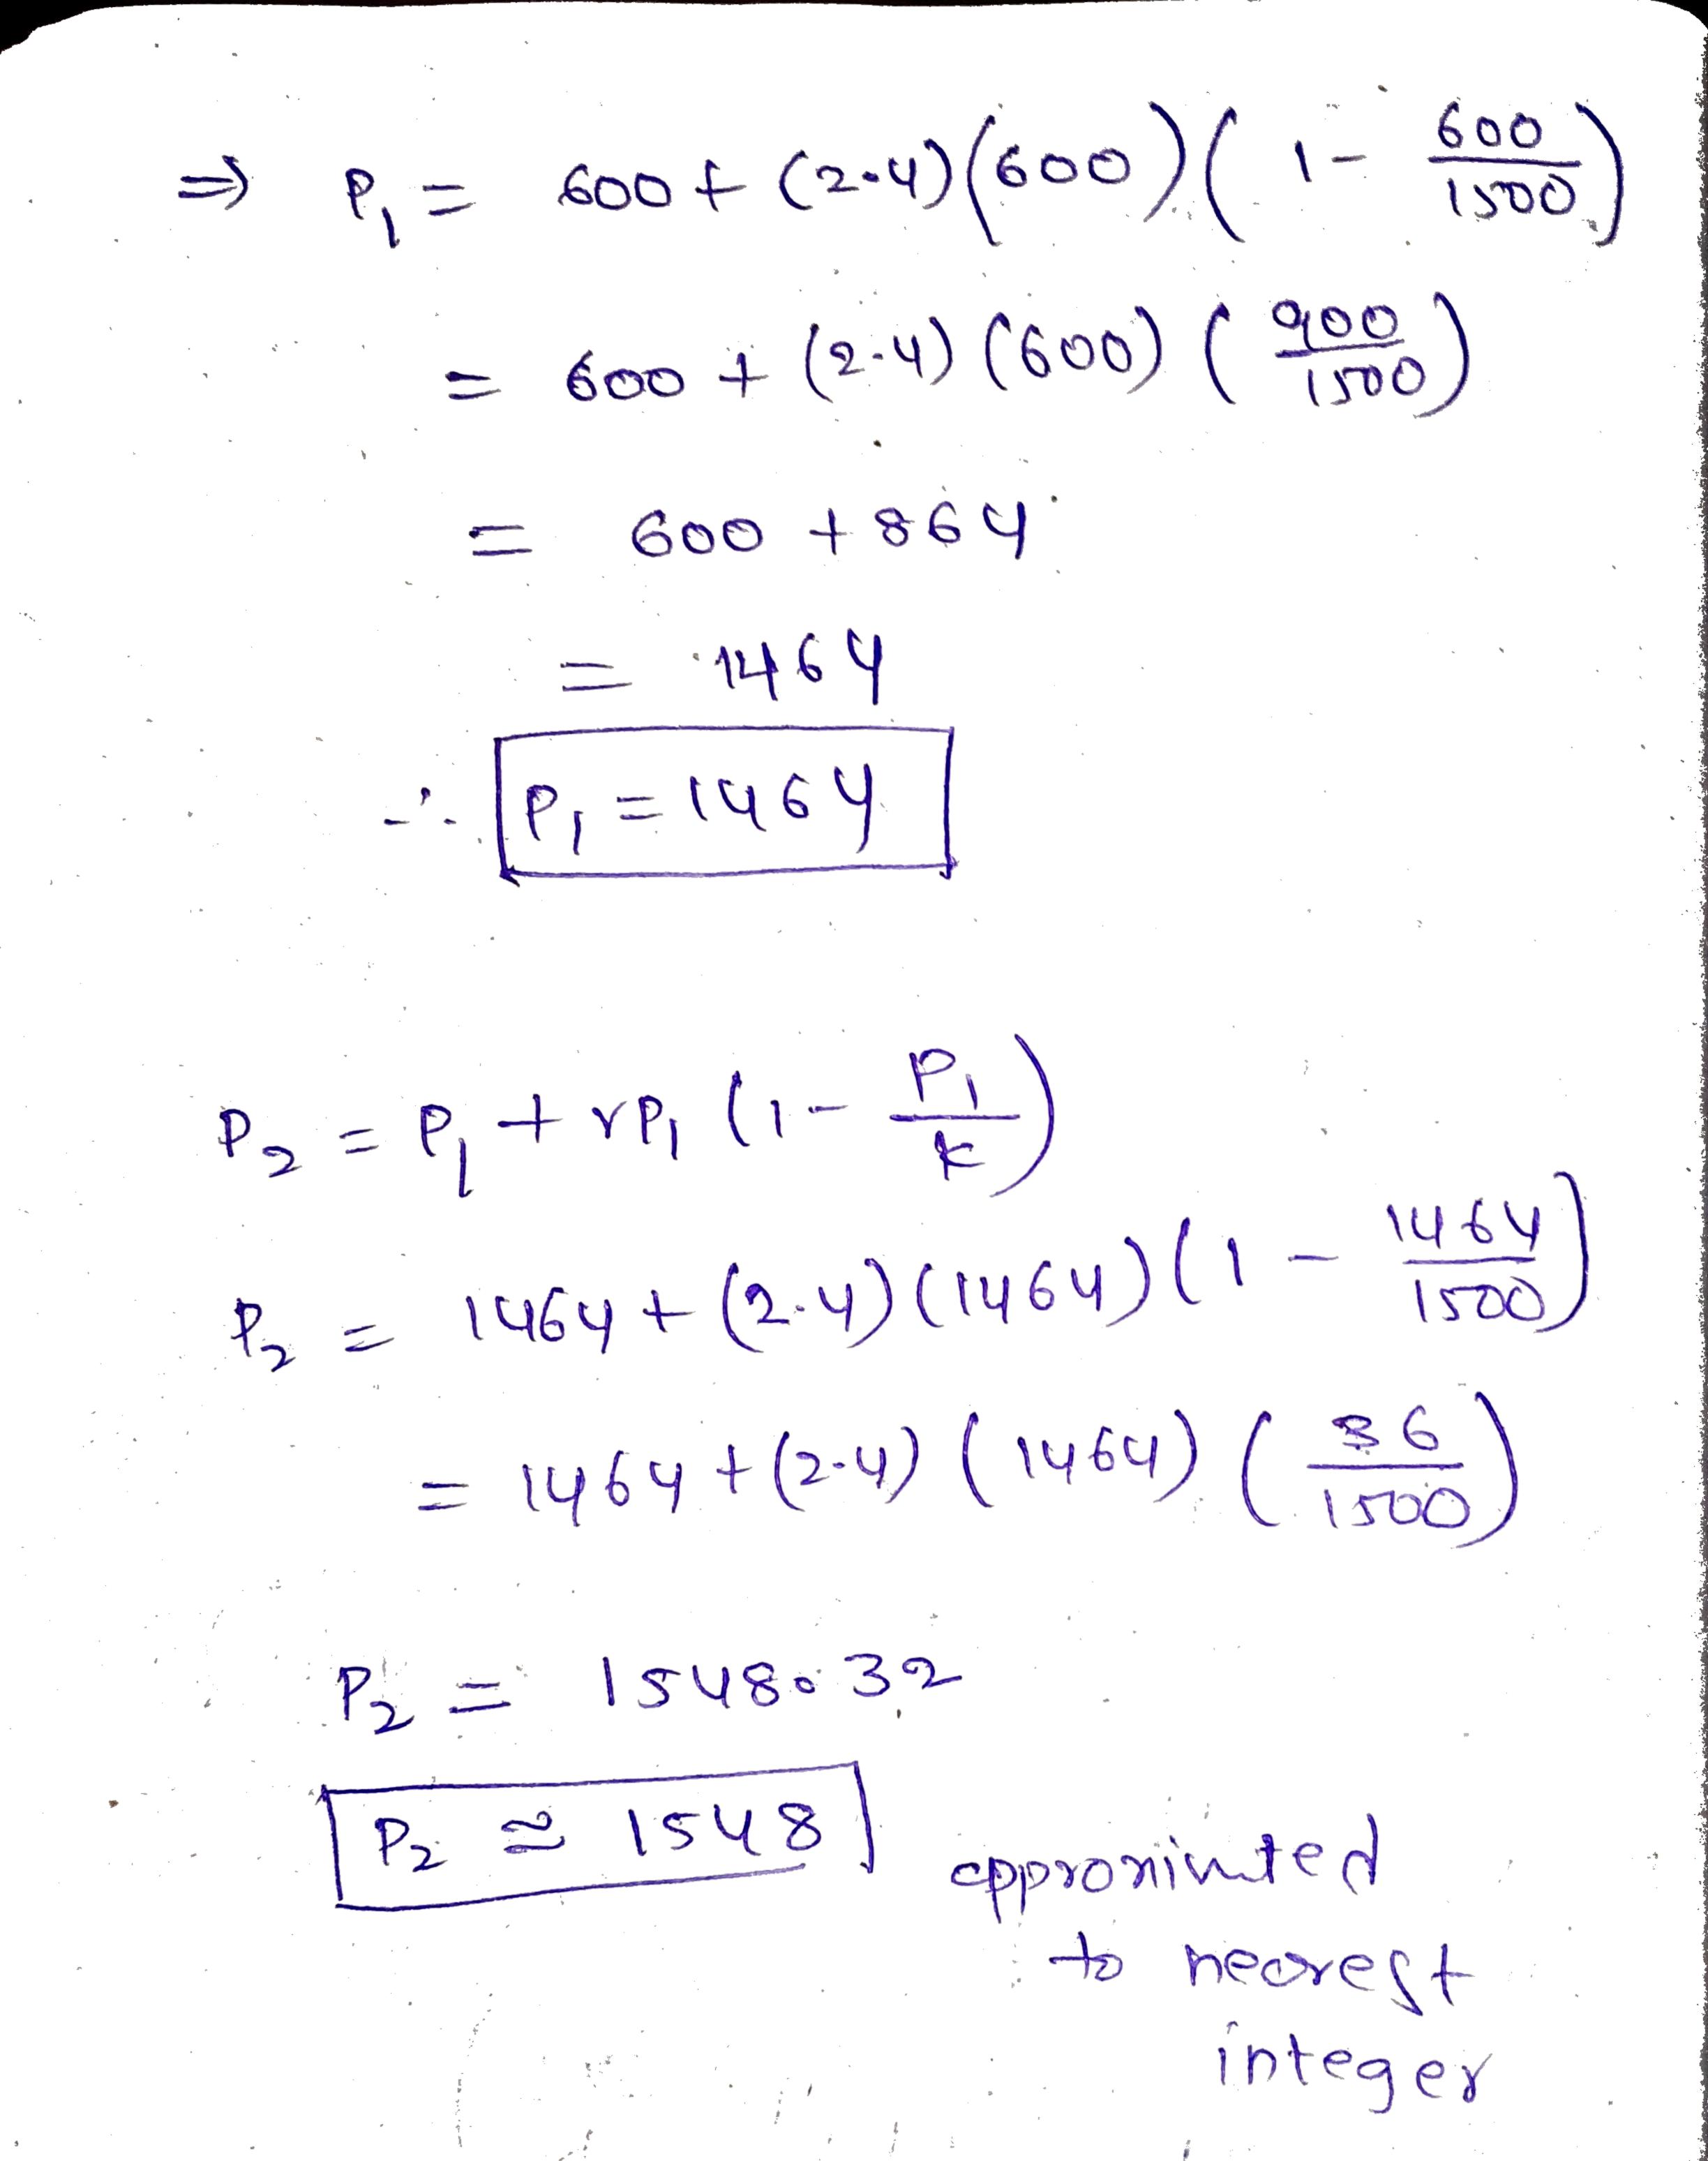 ⇒ P₁ = 600 + (2.4)(600)(1 - 600/1500)
= 600 + (2.4) (600) (900/1500)
= 600 + 864
= 1464
∴ P₁ = 1464
P₂ = P₁ + rP₁ (1 - P₁/K)
P₂ = 1464 + (2.4)(1464)(1 - 1464/1500)
= 1464 + (2.4) (1464) (36/1500)
P₂ = 1548.32
P₂ ≃ 1548
approximated
to nearest
integer